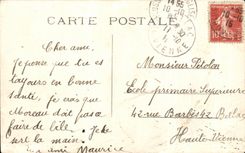 CARTE POSTALE
Cher ami,
Je pense que tu es
toujours en bonne
santé. Je crois que
Moreau doit pas
faire de bile. Je te
serre la main.
Ton ami Maurice
Monsieur Pitolon
Ecole primaire Supérieure
40 rue Barbès
Haute-Vienne